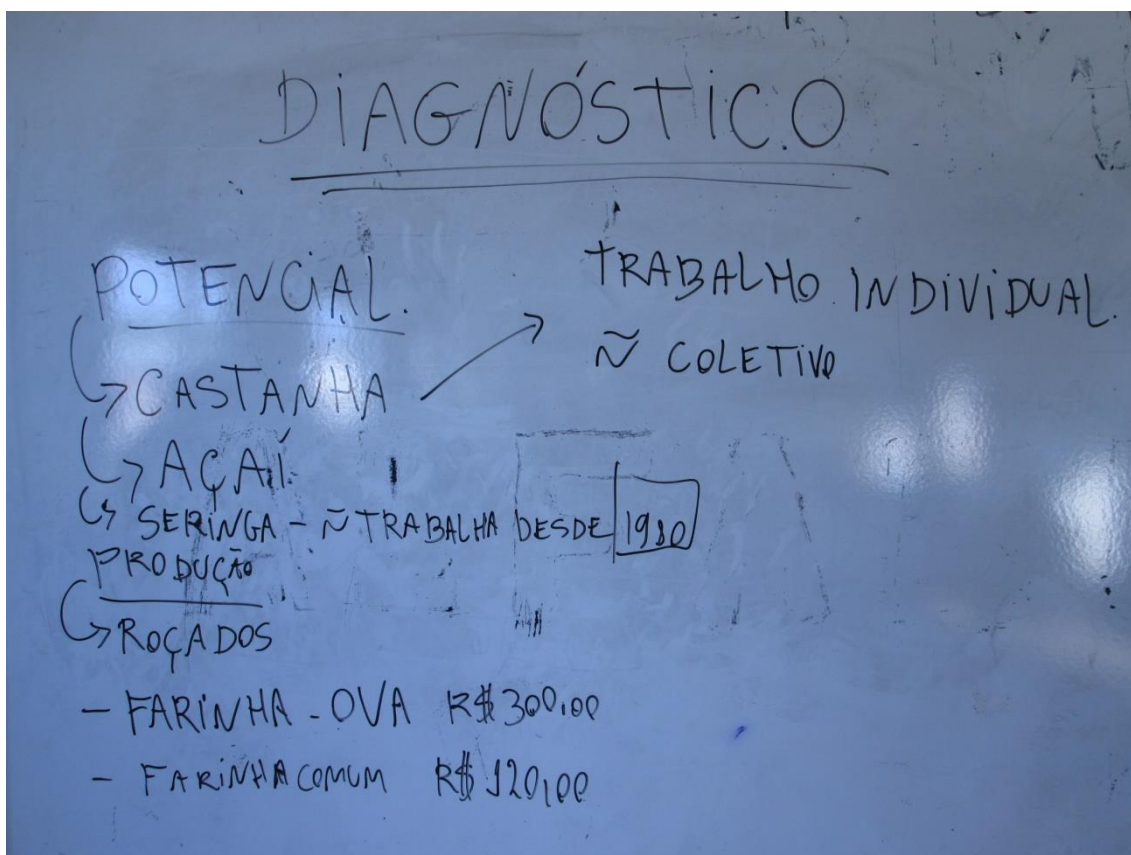 DIAGNÓSTICO
POTENCIAL.
→ CASTANHA → TRABALHO INDIVIDUAL.
Ñ COLETIVO
→ AÇAÍ
→ SERINGA - Ñ TRABALHA DESDE 1980
PRODUÇÃO
→ ROÇADOS
- FARINHA - OVA R$ 300,00
- FARINHA COMUM R$ 120,00